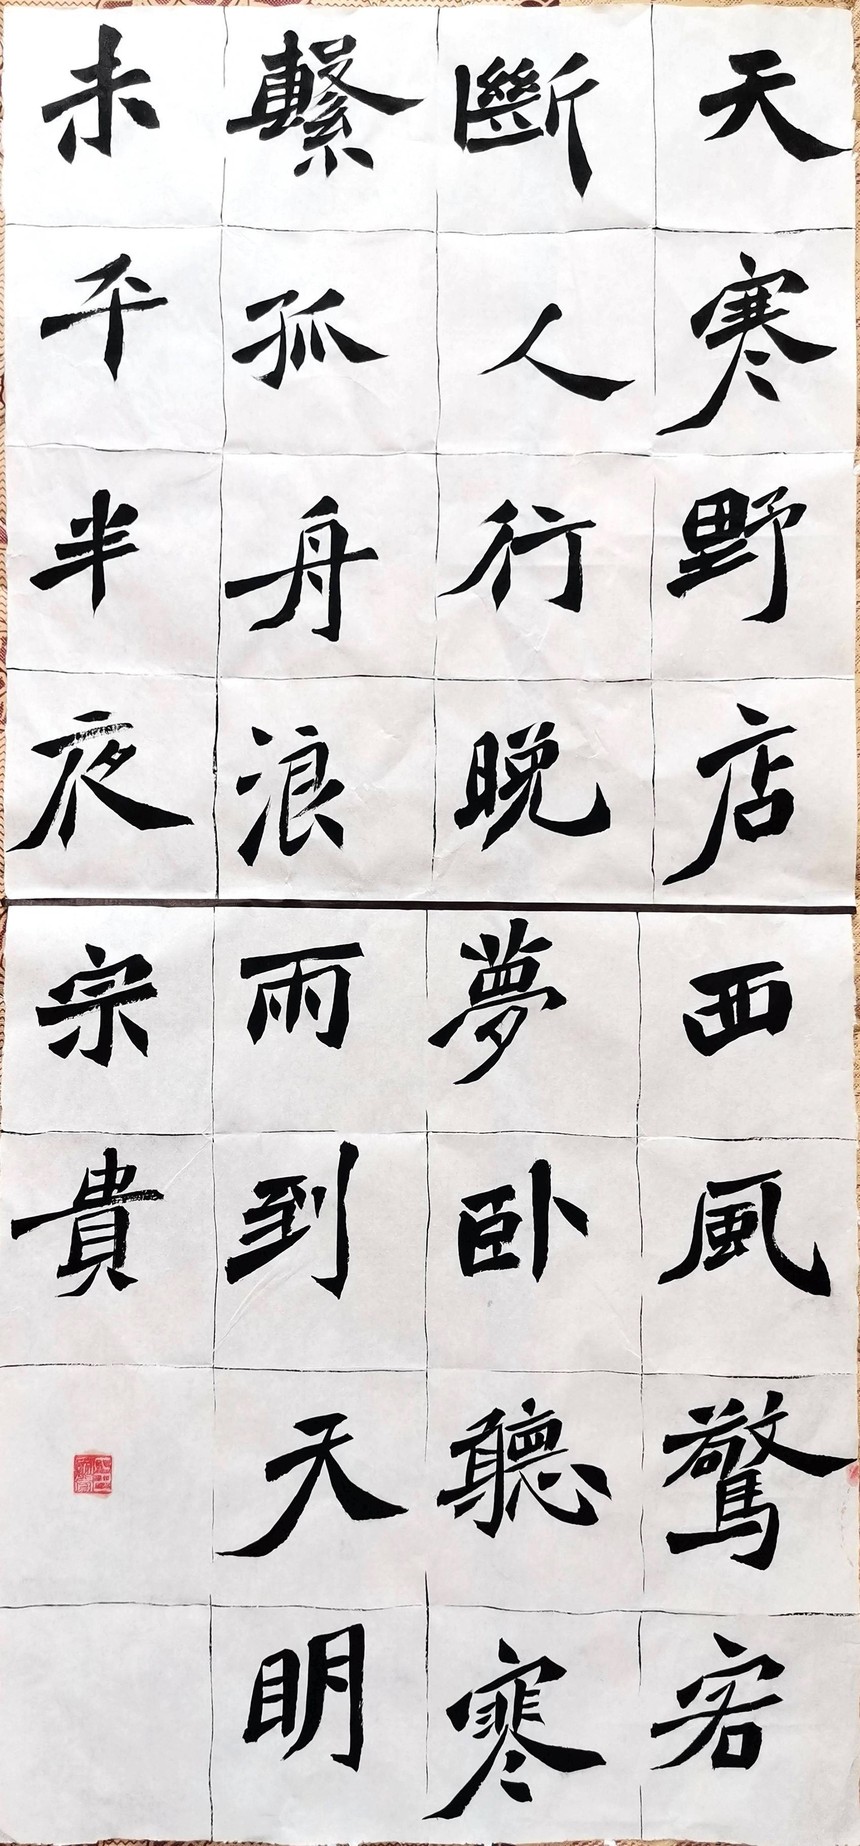 天寒野店
斷人行晚
繫孤舟浪
未平半夜
西風驚客
夢卧聽寒
雨到天明
宗貴